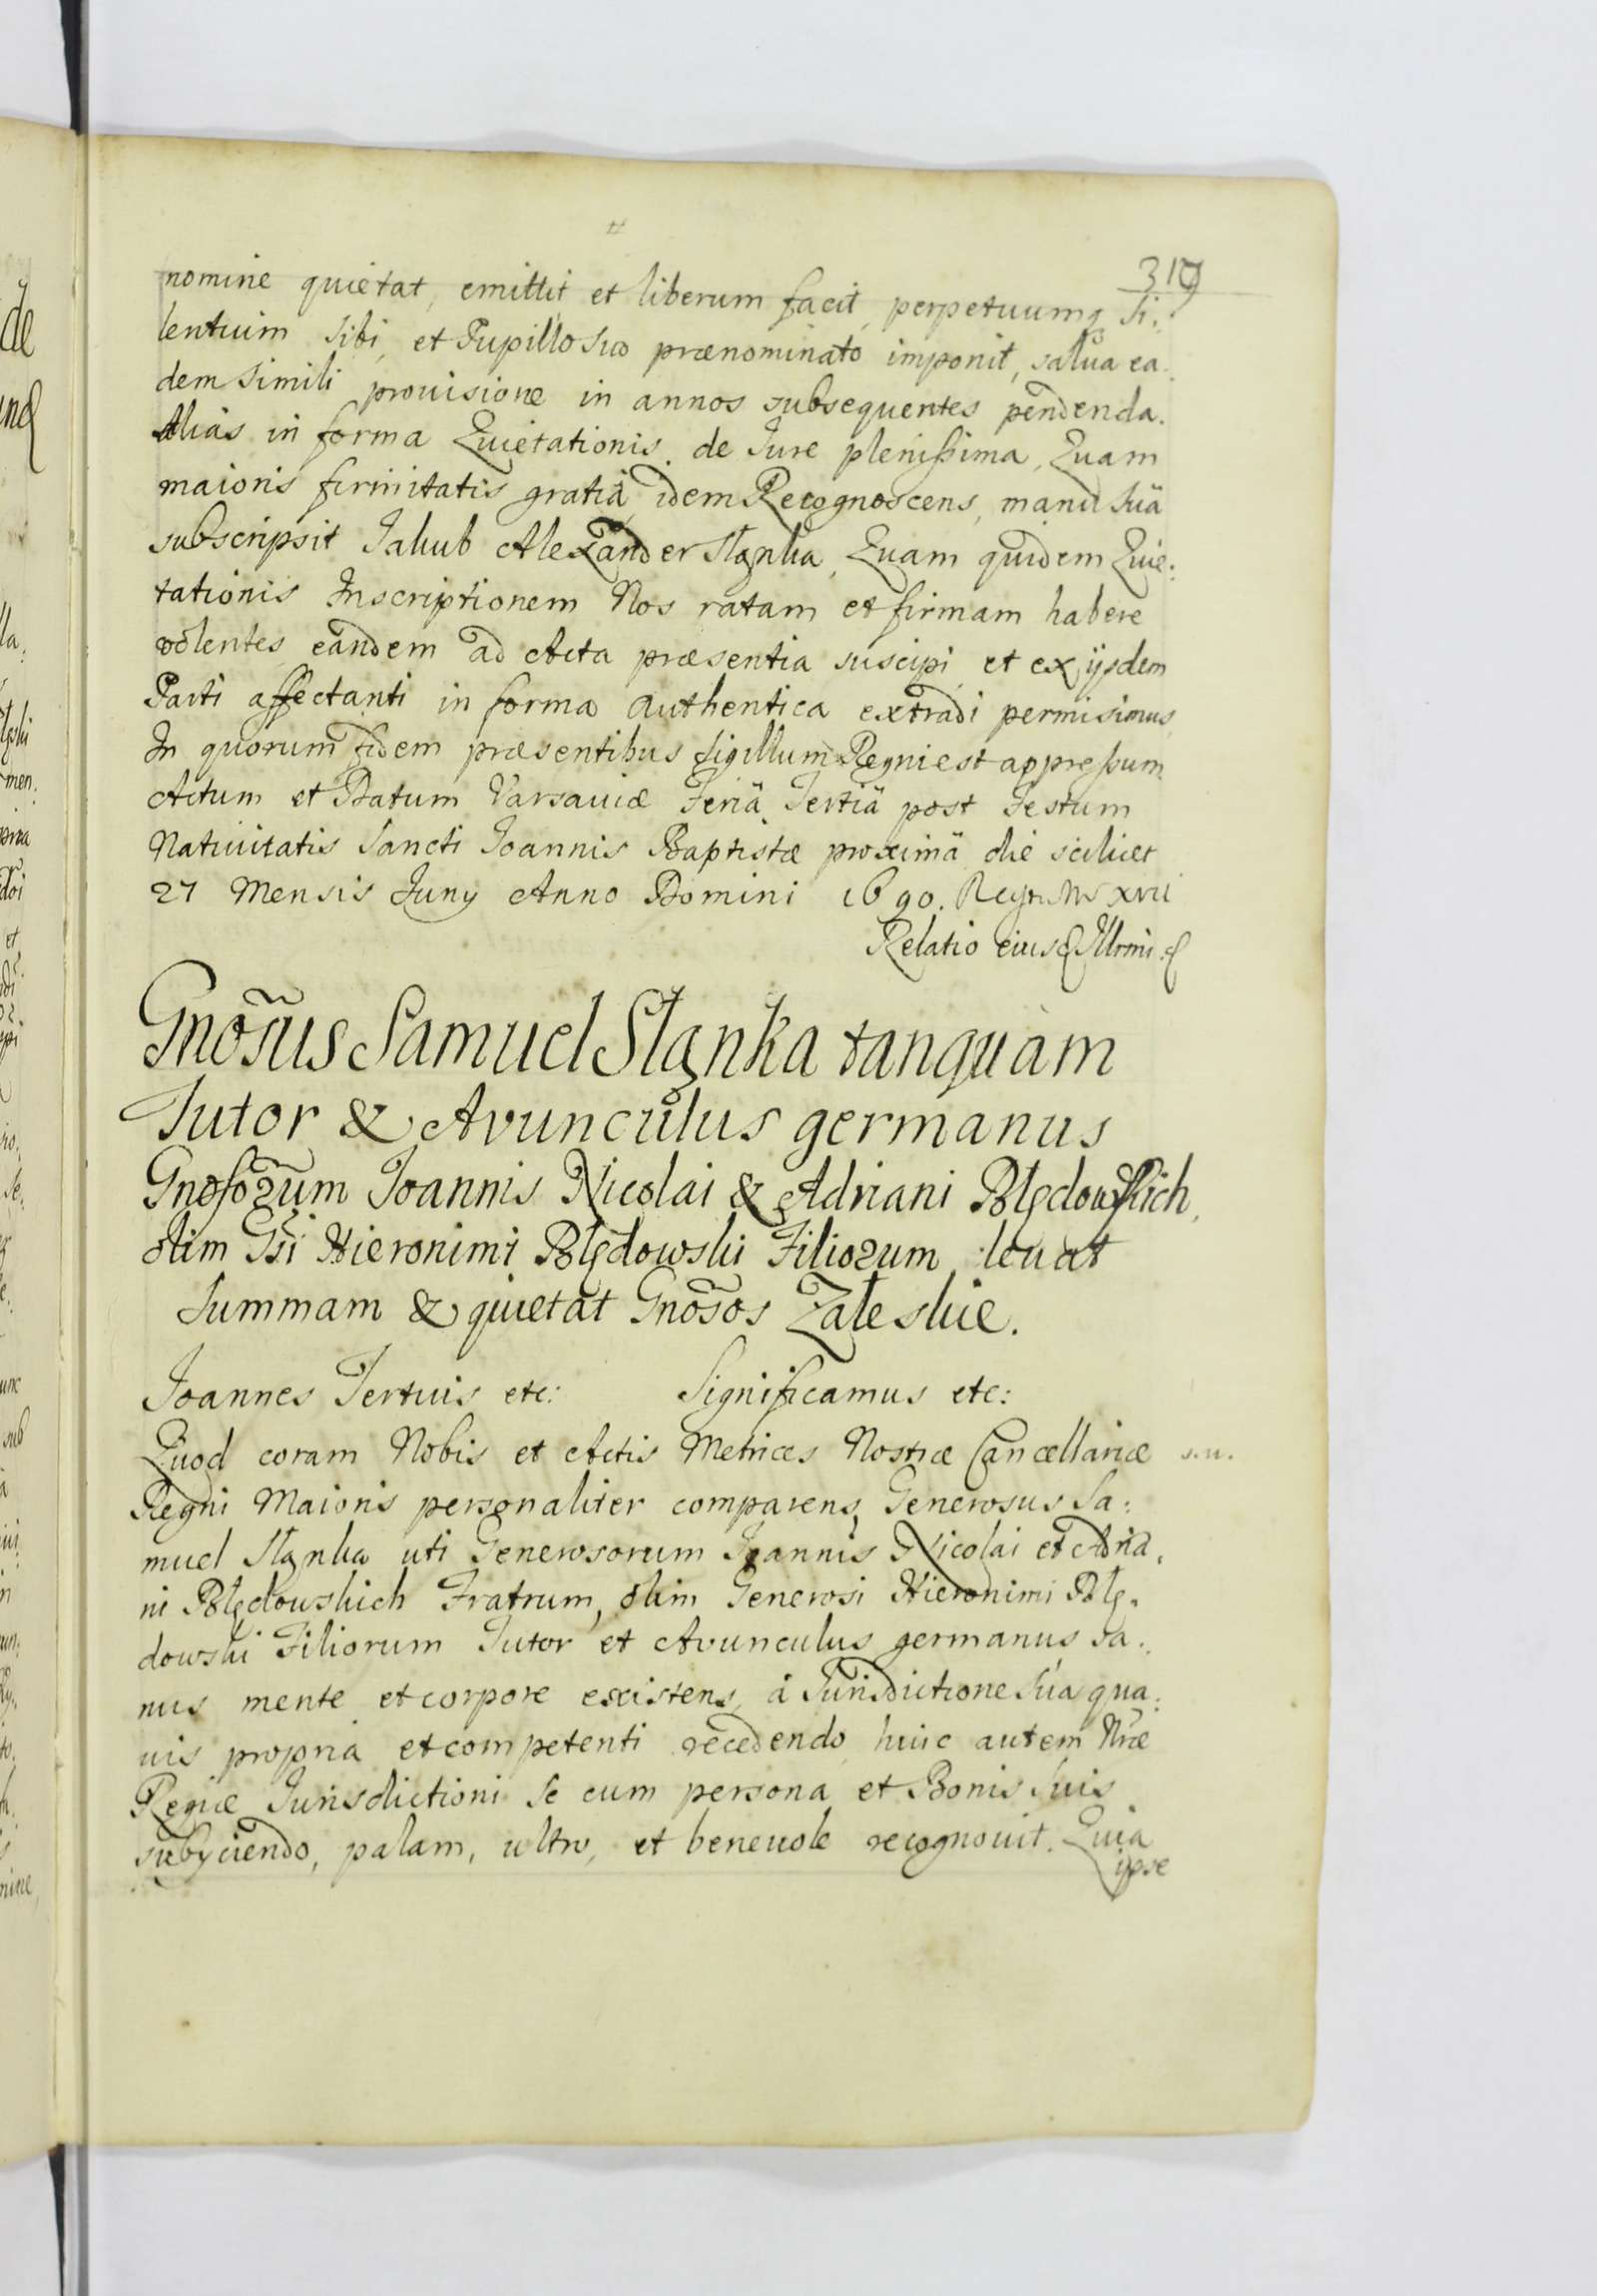 319
nomine quietat, emittit et liberum facit, perpetuumq Si:
lentium Sibi, et Pupillo Suo prænominato imponit, salua ea:
dem Simili prouisione in annos subsequentes pendenda.
Aliàs in forma Quietationis de Jure plenißima, Quam
maioris firmitatis gratiâ idem Recognoscens, manu Suâ
subscripsit Jakub Alexander Sląnka, Quam quidem Quie:
tationis Inscriptionem Nos ratam et firmam habere
volentes eandem ad Acta præsentia suscipi, et ex ijsdem
Parti affectanti in forma authentica extradi permisimus
In quorum fidem præsentibus Sigillum Regni est appreßum
Actum et Datum Varsauiæ Feriâ Tertiâ post Festum
Natiuitatis Sancti Joannis Baptistæ proximâ die scilicet
27 Mensis Juny Anno Domini 1690. Regni Nri XVII
Relatio eiusd Illrmi
Gnõsus Samuel Sląnka tanquam
Tutor & Avunculus germanus
Gnosorum Joannis Nicolai & Adriani Błędowskich,
olim Gsi Hieronimi Błędowski Filiorum leuat
Summam & quietat Gnõsos Zaleskie.
Joannes Tertius etc: Significamus etc:
Quod coram Nobis et Actis Metrices Nostræ Cancellariæ s.u.
Regni Maioris personaliter comparens, Generosus Sa:
muel Sląnka uti Generosorum Joannis Nicolai et Adria,
ni Błędowskich Fratrum, olim Generosi Hieronimi Błę.
dowski Filiorum Tutor et Avunculus germanus, sa:
nus mente et corpore existens, à Jurisdictione Suâ qua:
uis propria et competenti recedendo, huic autem Nræ
Regiæ Jurisdictioni Se cum persona et Bonis Suis
subyciendo, palam, ultro, et beneuole recognouit. Quia
ipse